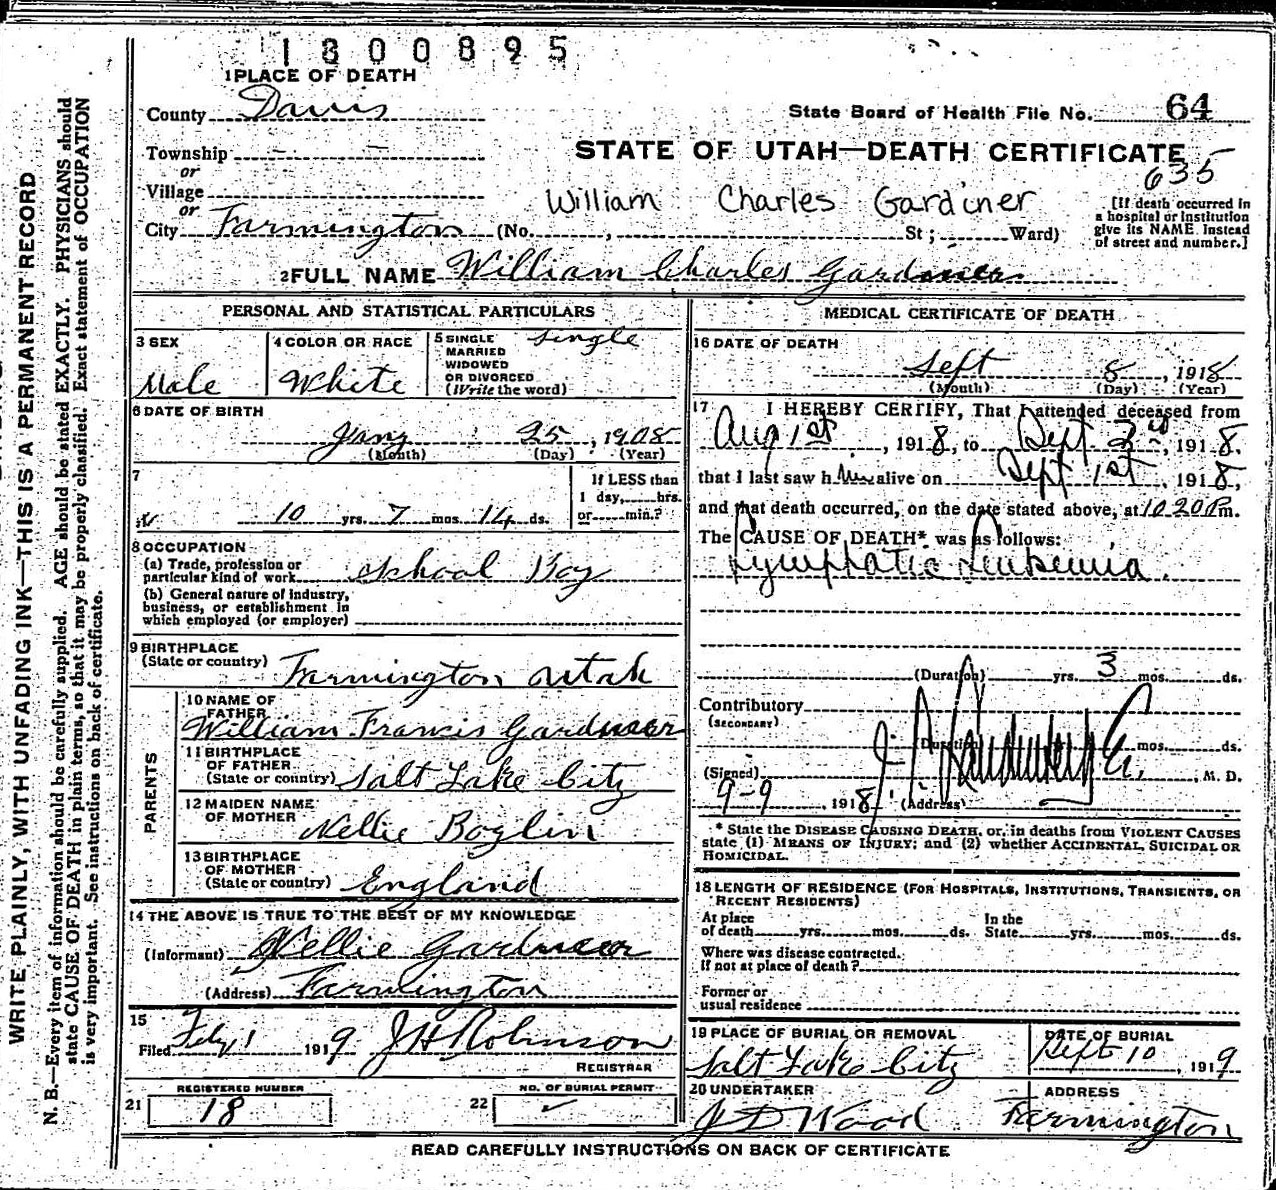 1300895
1 PLACE OF DEATH
County Davis
State Board of Health File No. 64
Township
or
Village
or
City Farmington (No. , St ; Ward)
STATE OF UTAH—DEATH CERTIFICATE
635
William Charles Gardiner
[If death occurred in
a hospital or institution
give its NAME instead
of street and number.]
2 FULL NAME William Charles Gardiner
PERSONAL AND STATISTICAL PARTICULARS
3 SEX
Male
4 COLOR OR RACE
White
5 SINGLE
MARRIED
WIDOWED
OR DIVORCED
(Write the word)
Single
6 DATE OF BIRTH
Jany 25, 1908
(Month) (Day) (Year)
7
10 yrs. 7 mos. 14 ds.
If LESS than
1 day, hrs.
or min.?
8 OCCUPATION
(a) Trade, profession or
particular kind of work School Boy
(b) General nature of industry,
business, or establishment in
which employed (or employer)
9 BIRTHPLACE
(State or country) Farmington Utah
PARENTS
10 NAME OF
FATHER
William Francis Gardiner
11 BIRTHPLACE
OF FATHER
(State or country) Salt Lake City
12 MAIDEN NAME
OF MOTHER
Nellie Boglin
13 BIRTHPLACE
OF MOTHER
(State or country) England
14 THE ABOVE IS TRUE TO THE BEST OF MY KNOWLEDGE
(Informant) Nellie Gardiner
(Address) Farmington
15
Filed Feby 1 1919 J H Robinson
REGISTRAR
21 REGISTERED NUMBER
18
22 NO. OF BURIAL PERMIT
✓
MEDICAL CERTIFICATE OF DEATH
16 DATE OF DEATH
Sept 8, 1918
(Month) (Day) (Year)
17 I HEREBY CERTIFY, That I attended deceased from
Aug 1st, 1918, to Sept 3rd, 1918.
that I last saw him alive on Sept 1st, 1918,
and that death occurred, on the date stated above, at 10 20 P m.
The CAUSE OF DEATH* was as follows:
Lymphatic Leukemia.
(Duration) yrs. 3 mos. ds.
Contributory
(SECONDARY)
(Duration) mos. ds.
(Signed) , M. D.
9-9, 1918 (Address)
* State the DISEASE CAUSING DEATH, or, in deaths from VIOLENT CAUSES
state (1) MEANS OF INJURY; and (2) whether ACCIDENTAL, SUICIDAL OR
HOMICIDAL.
18 LENGTH OF RESIDENCE (FOR HOSPITALS, INSTITUTIONS, TRANSIENTS, OR
RECENT RESIDENTS)
At place
of death yrs. mos. ds.
In the
State yrs. mos. ds.
Where was disease contracted.
if not at place of death?
Former or
usual residence
19 PLACE OF BURIAL OR REMOVAL
Salt Lake City
DATE OF BURIAL
Sept 10, 1919
20 UNDERTAKER
J D Wood
ADDRESS
Farmington
READ CAREFULLY INSTRUCTIONS ON BACK OF CERTIFICATE
WRITE PLAINLY, WITH UNFADING INK—THIS IS A PERMANENT RECORD
N. B.—Every item of information should be carefully supplied. AGE should be stated EXACTLY. PHYSICIANS should
state CAUSE OF DEATH in plain terms, so that it may be properly classified. Exact statement of OCCUPATION
is very important. See instructions on back of certificate.